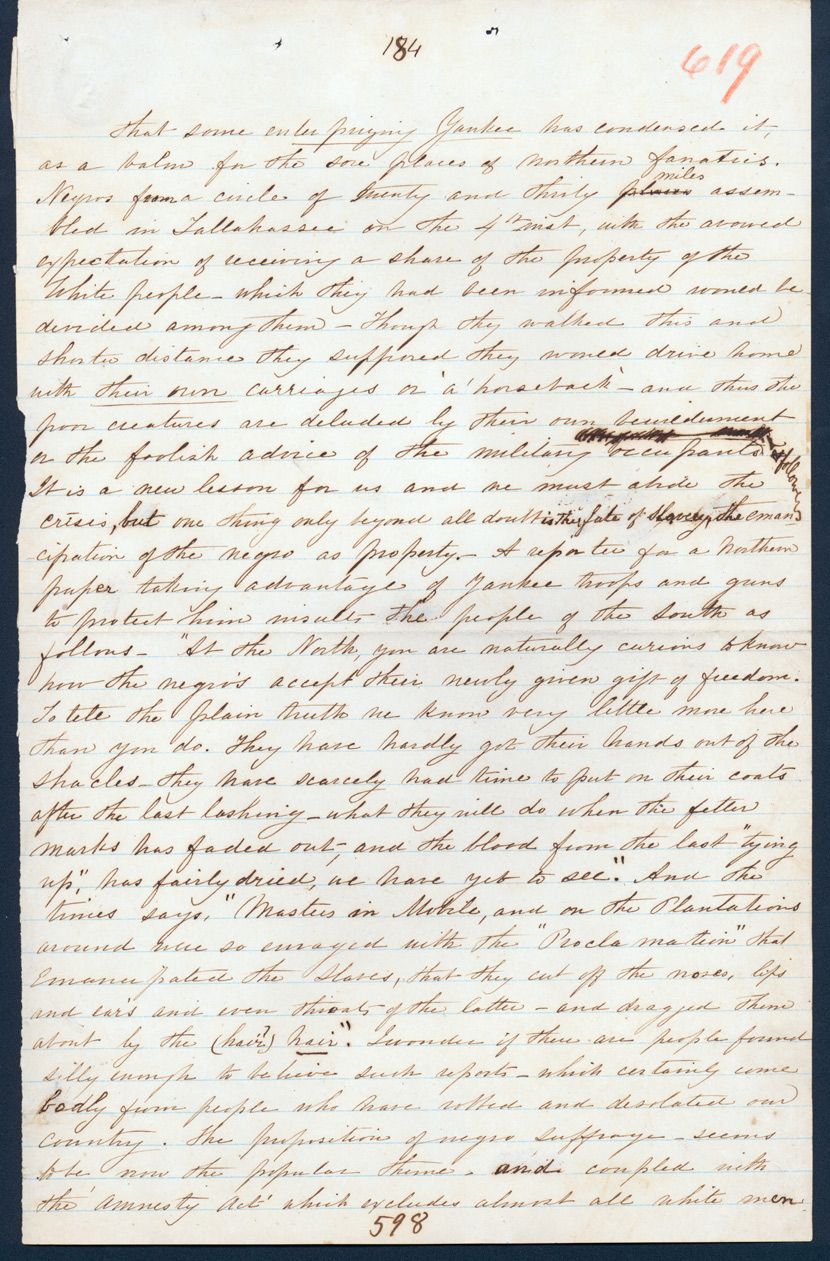 184
619
That some enterprizing Yankee has condensed it,
as a balm for the sore places of northern fanatics.
Negros from a circle of twenty and thirty miles assem-
bled in Tallahassee on the 4th inst, with the avowed
expectation of receiving a share of the property of the
white people - which they had been informed would be
devided among them - Though they walked this and
shorter distance they supposed they would drive home
with their own carriages or 'a' horseback' - and thus the
poor creatures are deluded by their own bewilderment
or the foolish advice of the military occupants & followers
It is a new lesson for us and we must abide the
crisis, but one thing only beyond all doubt is the fate of Slavery, the eman
cipation of the negro as property. - A reporter for a Northern
paper taking advantage of Yankee troops and guns
to protect him insults the people of the South as
follows - "At the North, you are naturally curious to know
how the negro's accept their newly given gift of freedom.
To tele the plain truth we know very little more here
than you do. They have hardly got their hands out of the
shacles - they have scarcely had time to put on their coats
after the last lashing - what they will do when the fetter
marks has faded out, and the blood from the last "tying
up", has fairly dried, we have yet to see". And the
times says, "Masters in Mobile, and on the Plantations
around were so enraged with the "Proclamation" that
Emancipated the slaves, that they cut off the noses, lips
and ears and even throats of the latter - and dragged them
about by the (hair?) hair". I wonder if there are people found
silly enough to believe such reports - which certainly come
badly from people who have robbed and desolated our
country. The proposition of negro suffrage - seems
to be now the popular theme. and coupled with
the 'amnesty Act' which excludes almost all white men
598